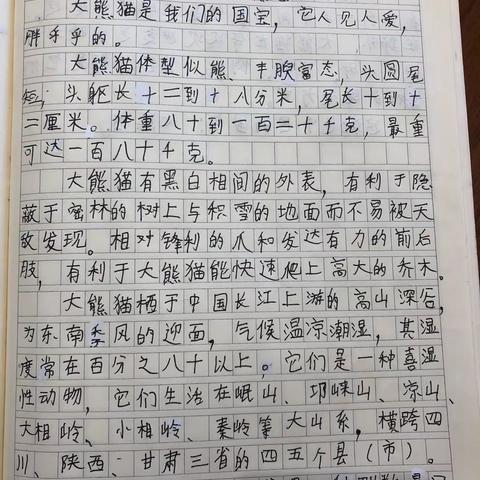 大熊猫是我们的国宝，它人见人爱，
胖乎乎的。
大熊猫体型似熊、丰腴富态，头圆尾
短，头躯长十二到十八分米，尾长十到十
二厘米。体重八十到一百二十千克，最重
可达一百八十千克。
大熊猫有黑白相间的外表，有利于隐
蔽于密林的树上与积雪的地面而不易被天
敌发现。相对锋利的爪和发达有力的前后
肢，有利于大熊猫能快速爬上高大的乔木。
大熊猫栖于中国长江上游的高山深谷，
为东南季风的迎面，气候温凉潮湿，其湿
度常在百分之八十以上。它们是一种喜湿
性动物，它们生活在岷山、邛崃山、凉山、
大相岭、小相岭、秦岭等大山系，横跨四
川、陕西、甘肃三省的四五个县（市）。